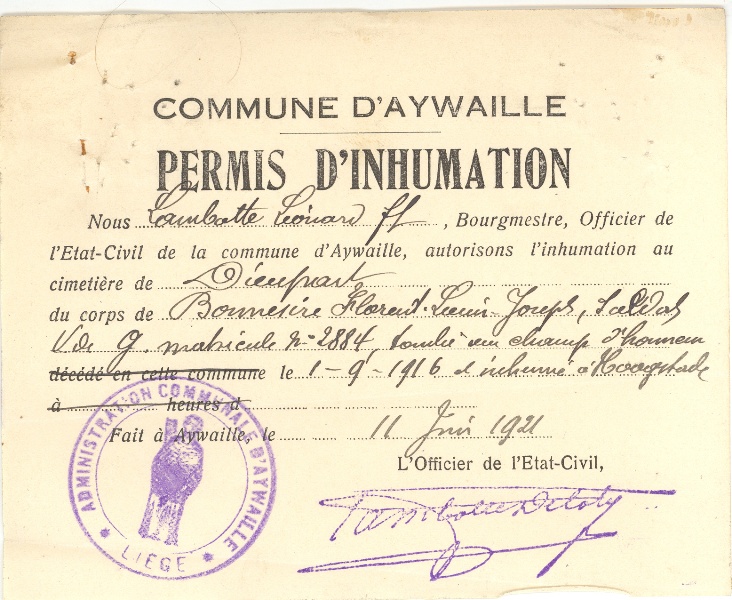 COMMUNE D'AYWAILLE
PERMIS D'INHUMATION
Nous Lambotte Léonard ff, Bourgmestre, Officier de
l'Etat-Civil de la commune d'Aywaille, autorisons l'inhumation au
cimetière de Dieupart
du corps de Bonmesire Florent-Joseph, soldat
V de G. matricule No 2884, tombé au champ d'honneur
décédé en cette commune le 1-9-1916 et inhumé à Hoogstade
à heures d
Fait à Aywaille, le 11 Juin 1921
L'Officier de l'Etat-Civil,
ADMINISTRATION COMMUNALE D'AYWAILLE
LIEGE